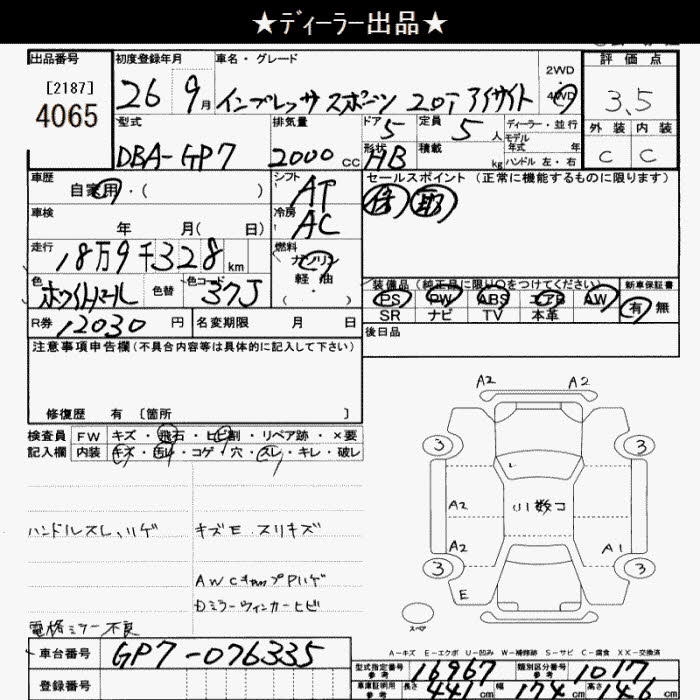 ★ディーラー出品★
出品番号
[2187]
4065
初度登録年月
26 9月
車名・グレード
インプレッサスポーツ 2.0i アイサイト
2WD
4WD
評価点
3.5
外装 内装
C C
型式
DBA-GP7
排気量
2000 CC
ドア
5
定員
5人
形状
HB
積載
kg
ディーラー・並行
モデル年式 年
ハンドル 左・右
車歴
自家用・( )
シフト
AT
車検
年 月( 日)
冷房
AC
走行
18万9千328km
燃料
ガソリン
軽油
( ・ )
色
ホワイトパール
色替
色コード
37J
R券
12030円
名変期限 月 日
セールスポイント (正常に機能するものに限ります)
保 取
装備品 (純正品に限り○をつけてください)
PS PW ABS エアB AW
SR ナビ TV 本革
新車保証書
有 無
後日品
注意事項申告欄(不具合内容等は具体的に記入して下さい)
修復歴 有 〔箇所 〕
検査員記入欄
FW キズ・飛石・ヒビ割・リペア跡・×要
内装 キズ・汚れ・コゲ・穴・スレ・キレ・破レ
ハンドルスレ、ハゲ
キズE スリキズ
AWCキャップPハゲ
Dミラーウィンカーヒビ
電格ミラー不良
A2 A2
3 3
A2
小数コ
A2 A1
3 3
E
スペア
A-キズ E-エクボ U-凹み W-補修跡 S-サビ C-腐食 XX-交換済
車台番号
GP7-076335
登録番号
型式指定番号
参考
16967
類別区分番号
参考
1017
車庫証明用
参考
長さ 441cm 幅 174cm 高さ 146cm